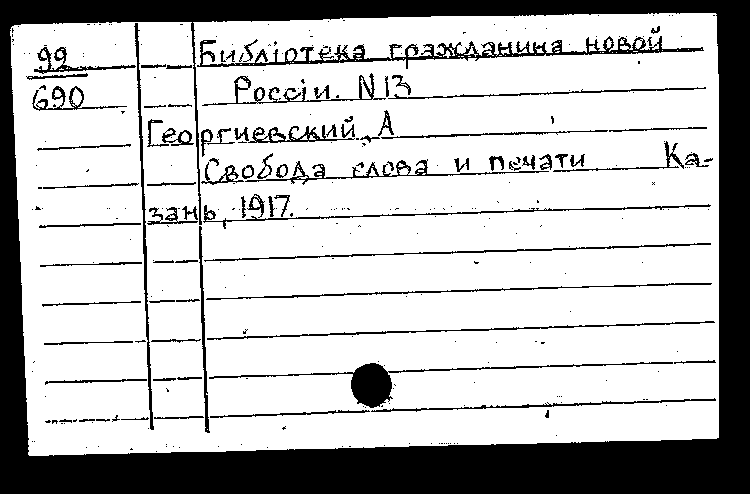 99 Библіотека гражданина новой
690 Россіи. N 13
Георгиевский, А
Свобода слова и печати Ка-
зань, 1917.